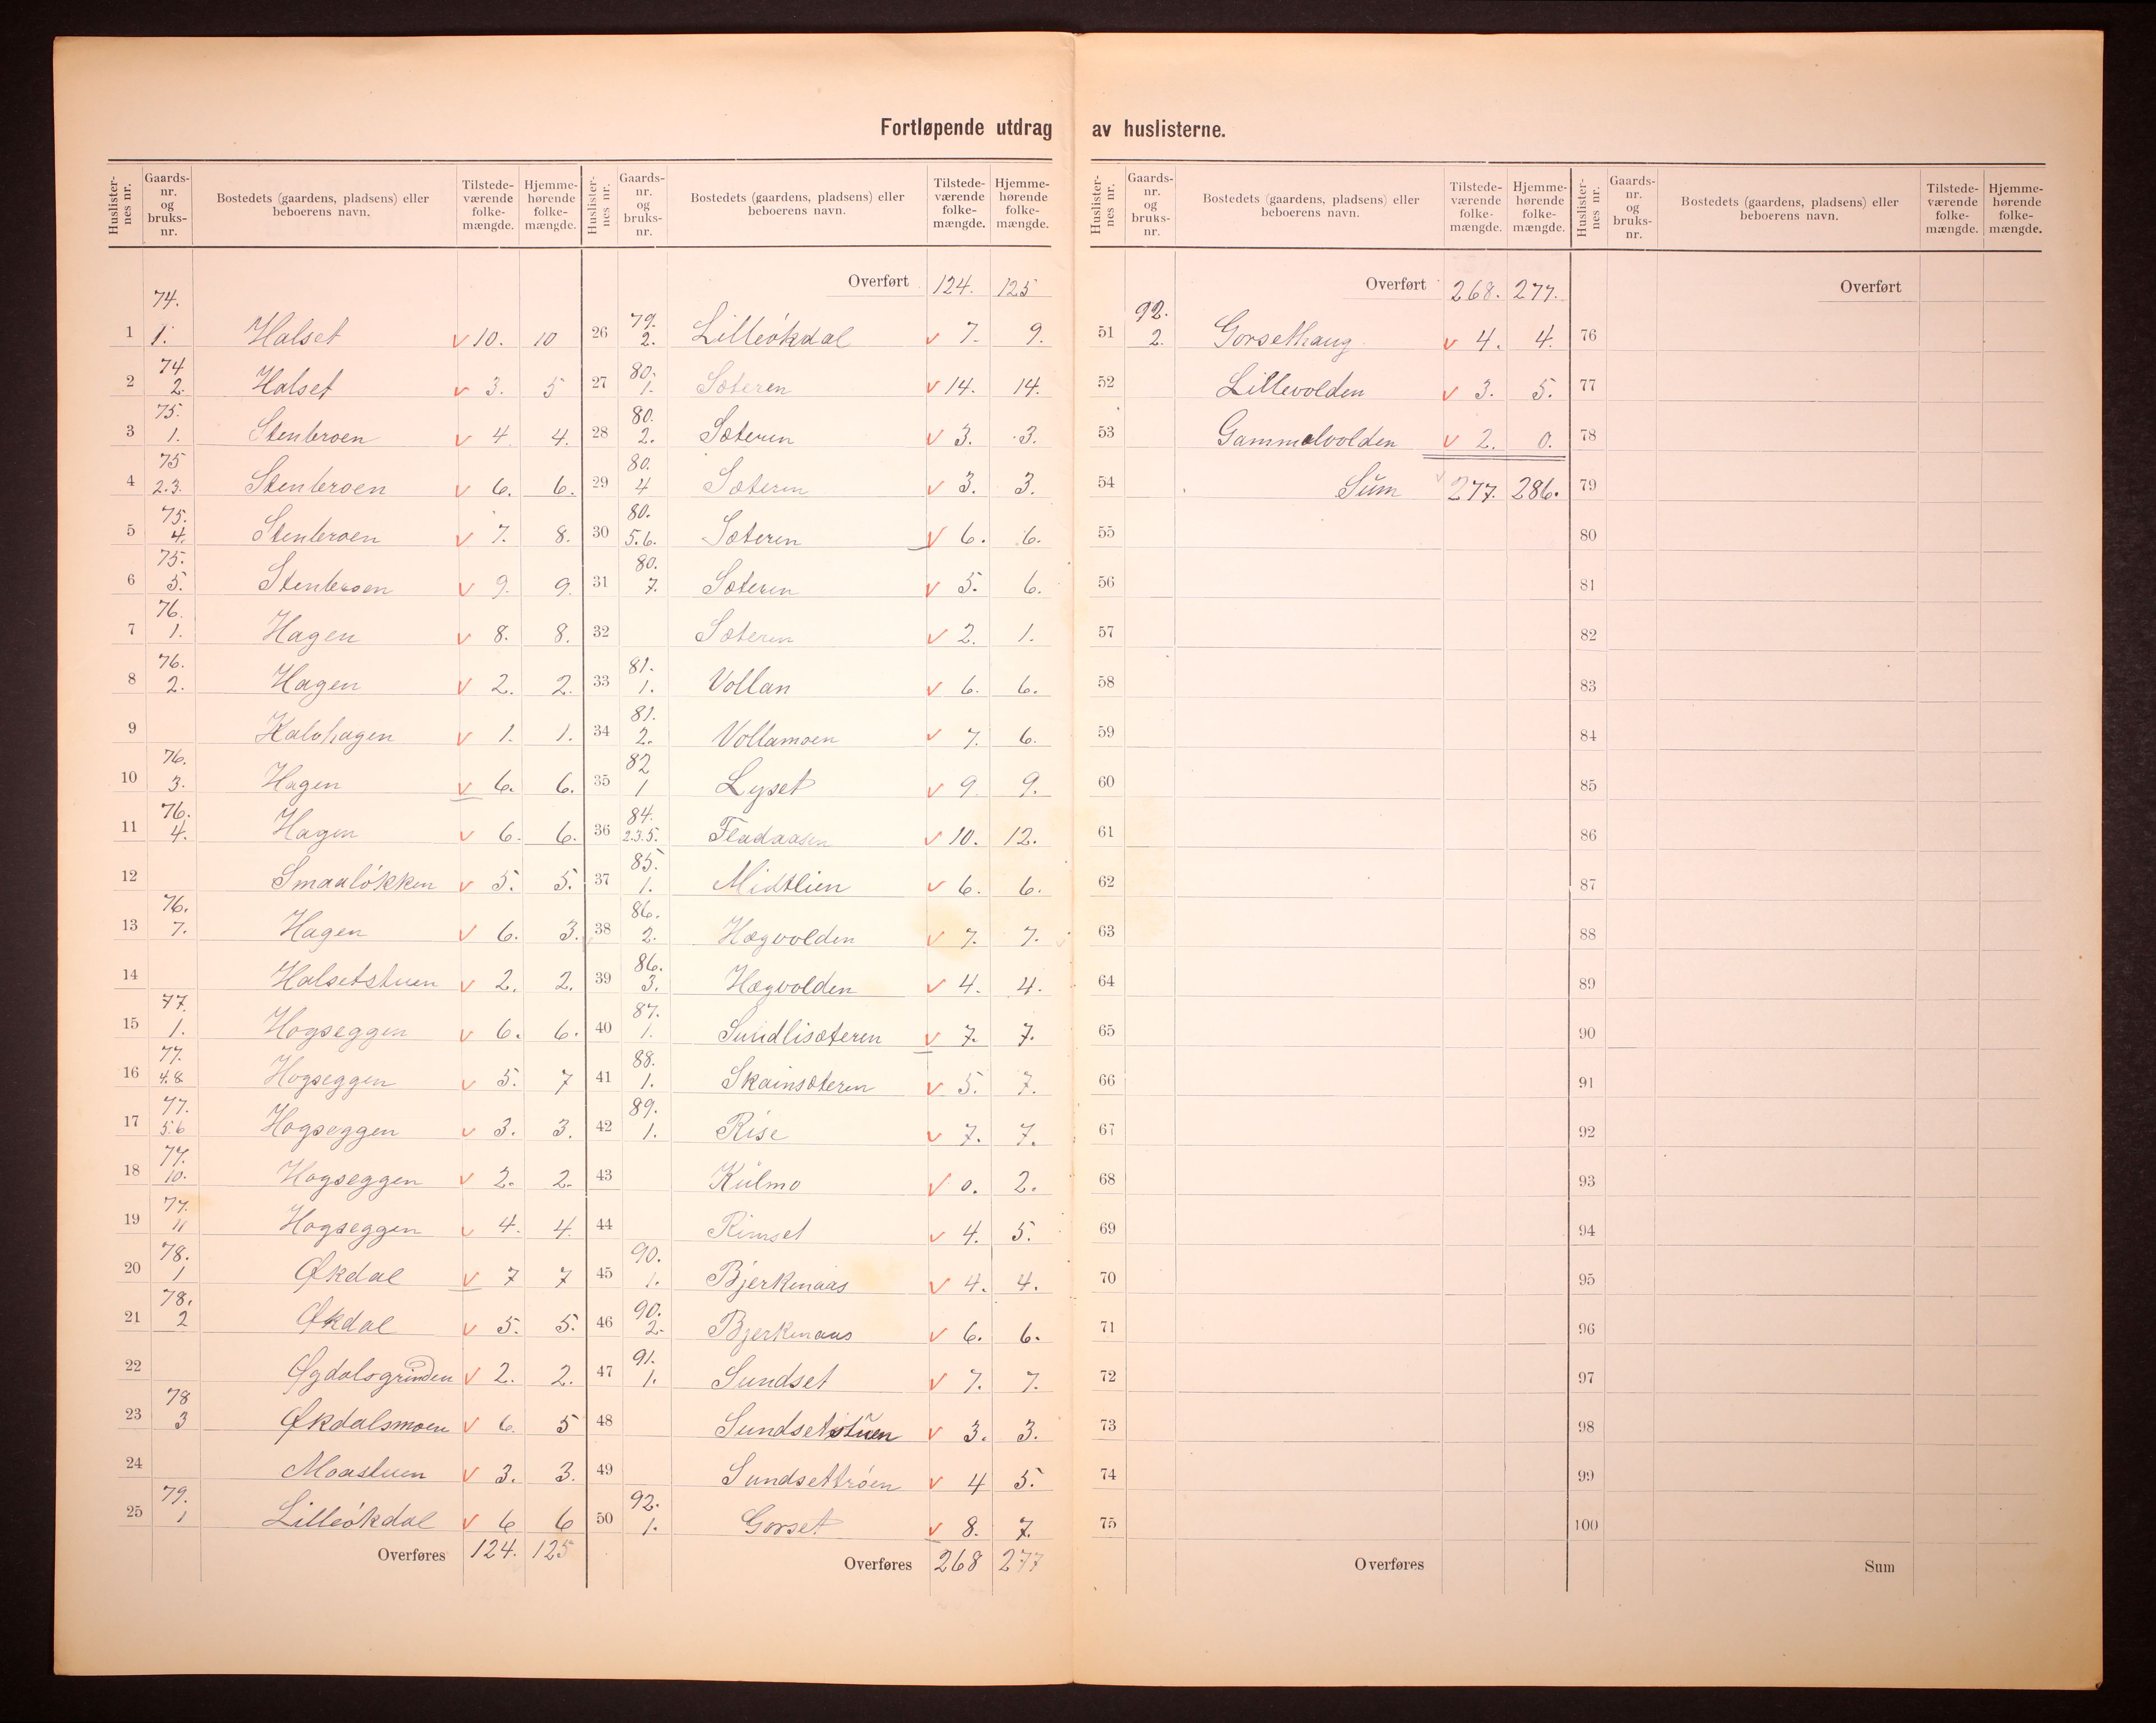 Fortløpende utdrag av huslisterne.
Huslister-nes nr. | Gaards-nr. og bruks-nr. | Bostedets (gaardens, pladsens) eller beboerens navn. | Tilstede-værende folke-mængde. | Hjemme-hørende folke-mængde.
1 74. 1. Halset v 10. 10
2 74 2. Halset v 3. 5
3 75. 1. Stenbroen v 4 4.
4 75 2.3. Stenbroen v 6. 6.
5 75. 4. Stenbroen v 7. 8.
6 75. 5. Stenbroen v 9. 9.
7 76. 1. Hagen v 8. 8.
8 76. 2. Hagen v 2. 2.
9 Kalvhagen v 1. 1.
10 76. 3. Hagen v 6. 6.
11 76. 4. Hagen v 6. 6.
12 Smaaløkken v 5. 5.
13 76. 7. Hagen v 6. 3.
14 Halsetstuen v 2. 2.
15 77. 1. Hogseggen v 6. 6.
16 77. 4.8. Hogseggen v 5. 7
17 77. 5.6 Hogseggen v 3. 3.
18 77. 10. Hogseggen v 2. 2.
19 77. 11 Hogseggen v 4. 4.
20 78. 1 Økdal v 7 7
21 78. 2 Økdal v 5. 5.
22 Øgdalsgrinden v 2. 2.
23 78 3 Økdalsmoen v 6. 5
24 Moastuen v 3. 3.
25 79. 1 Lilleøkdal v 6 6
Overføres 124. 125
Huslister-nes nr. | Gaards-nr. og bruks-nr. | Bostedets (gaardens, pladsens) eller beboerens navn. | Tilstede-værende folke-mængde. | Hjemme-hørende folke-mængde.
Overført 124. 125
26 79. 2. Lilleøkdal v 7. 9.
27 80. 1. Sæteren v 14. 14.
28 80. 2. Sæteren v 3. 3.
29 80. 4 Sæteren v 3. 3.
30 80. 5.6. Sæteren v 6. 6.
31 80. 7. Sæteren v 5. 6.
32 Sæteren v 2. 1.
33 81. 1. Vollan v 6. 6.
34 81. 2. Vollamoen v 7. 6.
35 82 1 Lyset v 9 9.
36 84. 2.3.5. Fladaasen v 10. 12.
37 85. 1. Midtlien v 6. 6.
38 86. 2. Hægvolden v 7. 7.
39 86. 3. Hægvolden v 4. 4.
40 87. 1. Sundlisæteren v 7. 7.
41 88. 1. Skainsæteren v 5. 7.
42 89. 1. Rise v 7. 7.
43 Kulmo v 0. 2.
44 Rimset v 4. 5.
45 90. 1. Bjerkenaas v 4. 4.
46 90. 2. Bjerkenaas v 6. 6.
47 91. 1. Sundset v 7. 7.
48 Sundsetstuen v 3. 3.
49 Sundsettrøen v 4 5.
50 92. 1. Gorset v 8. 7.
Overføres 268 277
Huslister-nes nr. | Gaards-nr. og bruks-nr. | Bostedets (gaardens, pladsens) eller beboerens navn. | Tilstede-værende folke-mængde. | Hjemme-hørende folke-mængde.
Overført 268. 277.
51 92. 2. Gorsethaug v 4. 4.
52 Lillevolden v 3. 5.
53 Gammelvolden v 2. 0.
54 Sum v 277. 286.
55
56
57
58
59
60
61
62
63
64
65
66
67
68
69
70
71
72
73
74
75
Overføres
Huslister-nes nr. | Gaards-nr. og bruks-nr. | Bostedets (gaardens, pladsens) eller beboerens navn. | Tilstede-værende folke-mængde. | Hjemme-hørende folke-mængde.
Overført
76
77
78
79
80
81
82
83
84
85
86
87
88
89
90
91
92
93
94
95
96
97
98
99
100
Sum